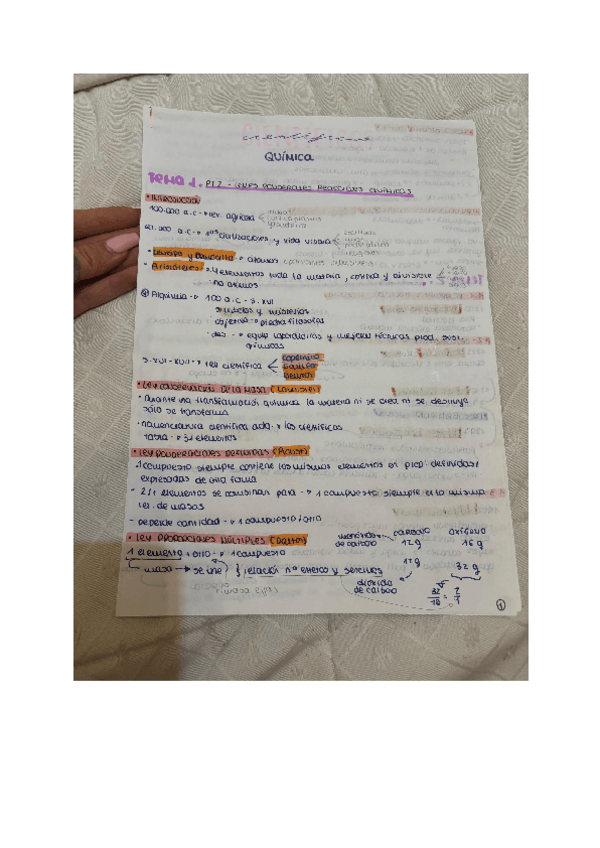 científica
QUÍMICA
TEMA 1. PTZ - LEYES PONDERALES REACCIONES QUÍMICAS
• INTRODUCCIÓN
100.000 a.C → rev. agrícola
a.C → 1as civilizaciones y vida urbana
ganadería
escritura
• Leucipo y Demócrito → átomos
• Aristóteles → 4 elementos toda la materia, continua y divisible
no átomos
Alquimia → 100 a.C - S. XVI
símbolos y misterios
objetivo → piedra filosofal
des. → equip laboratorios y mejores técnicas prod. sust.
químicas
S. XVI - XVII → rev científica
Copérnico
Galileo
Newton
• LEY CONSERVACIÓN DE LA MASA (Lavoisier)
• durante una transformación química la materia ni se crea ni se destruye
sólo se transforma
• nomenclatura científica adq. → los científicos
tabla → 31 elementos
• LEY PROPORCIONES DEFINIDAS (Proust)
1 compuesto siempre contiene los mismos elementos en prop. definidas/
expresadas de otra forma
- 2/+ elementos se combinan para → 1 compuesto siempre es la misma
rel. de masas
- depende cantidad → 1 compuesto / otro
• LEY PROPORCIONES MÚLTIPLES (Dalton)
monóxido de carbono
carbono 12 g
oxígeno 16 g
1 elemento + otro → 1 compuesto
masa → se une } relación nº entero y sencillos
dióxido de carbono
12 g
32 g
32/16 = 2/1
1